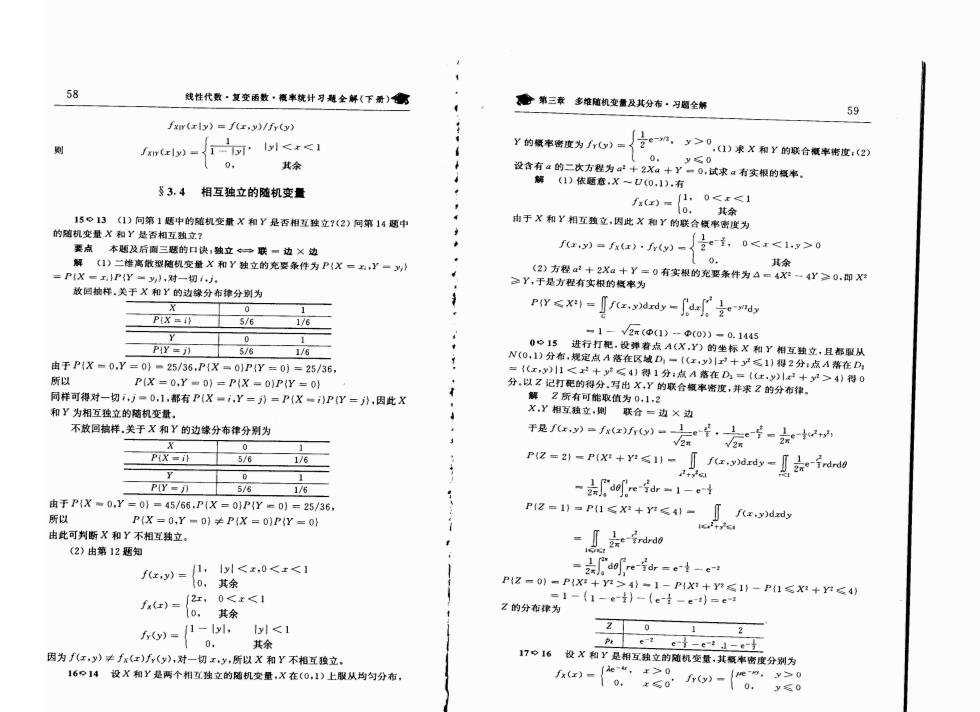 58
线性代数·复变函数·概率统计习题全解(下册)
f_{X|Y}(x|y) = f(x,y)/f_Y(y)
则 f_{X|Y}(x|y) = { 1/(1-|y|), |y|<x<1
0, 其余
§3.4 相互独立的随机变量
15⇨13 (1) 问第1题中的随机变量 X 和 Y 是否相互独立?(2) 问第14题中
的随机变量 X 和 Y 是否相互独立?
要点 本题及后面三题的口诀:独立 ⟺ 联 = 边 × 边
解 (1) 二维离散型随机变量 X 和 Y 独立的充要条件为 P{X = x_i,Y = y_j}
= P{X = x_i}P{Y = y_j},对一切 i,j。
放回抽样,关于 X 和 Y 的边缘分布律分别为
X 0 1
P{X = i} 5/6 1/6
Y 0 1
P{Y = j} 5/6 1/6
由于 P{X = 0,Y = 0} = 25/36,P{X = 0}P{Y = 0} = 25/36,
所以 P{X = 0,Y = 0} = P{X = 0}P{Y = 0}
同样可得对一切 i,j = 0,1,都有 P{X = i,Y = j} = P{X = i}P{Y = j},因此 X
和 Y 为相互独立的随机变量。
不放回抽样,关于 X 和 Y 的边缘分布律分别为
X 0 1
P{X = i} 5/6 1/6
Y 0 1
P{Y = j} 5/6 1/6
由于 P{X = 0,Y = 0} = 45/66,P{X = 0}P{Y = 0} = 25/36,
所以 P{X = 0,Y = 0} ≠ P{X = 0}P{Y = 0}
由此可判断 X 和 Y 不相互独立。
(2) 由第12题知
f(x,y) = { 1, |y|<x,0<x<1
0, 其余
f_X(x) = { 2x, 0<x<1
0, 其余
f_Y(y) = { 1-|y|, |y|<1
0, 其余
因为 f(x,y) ≠ f_X(x)f_Y(y),对一切 x,y,所以 X 和 Y 不相互独立。
16⇨14 设 X 和 Y 是两个相互独立的随机变量,X 在(0,1)上服从均匀分布,
第三章 多维随机变量及其分布·习题全解
59
Y 的概率密度为 f_Y(y) = { 1/2 e^{-y/2}, y>0
0, y≤0 .(1) 求 X 和 Y 的联合概率密度;(2)
设含有 a 的二次方程为 a² + 2Xa + Y = 0,试求 a 有实根的概率。
解 (1) 依题意,X ~ U(0,1),有
f_X(x) = { 1, 0<x<1
0, 其余
由于 X 和 Y 相互独立,因此 X 和 Y 的联合概率密度为
f(x,y) = f_X(x)·f_Y(y) = { 1/2 e^{-y/2}, 0<x<1,y>0
0, 其余
(2) 方程 a² + 2Xa + Y = 0 有实根的充要条件为 Δ = 4X² - 4Y ≥ 0,即 X²
≥ Y,于是方程有实根的概率为
P{Y ≤ X²} = ∬_G f(x,y)dxdy = ∫_0^1 dx∫_0^{x²} 1/2 e^{-y/2}dy
= 1 - √2π(Φ(1) - Φ(0)) = 0.1445
0⇨15 进行打靶,设弹着点 A(X,Y) 的坐标 X 和 Y 相互独立,且都服从
N(0,1) 分布,规定点 A 落在区域 D₁ = {(x,y)|x² + y² ≤ 1} 得2分;点 A 落在 D₂
= {(x,y)|1 < x² + y² ≤ 4} 得1分;点 A 落在 D₃ = {(x,y)|x² + y² > 4} 得0
分,以 Z 记打靶的得分,写出 X,Y 的联合概率密度,并求 Z 的分布律。
解 Z 所有可能取值为 0,1,2
X,Y 相互独立,则 联合 = 边 × 边
于是 f(x,y) = f_X(x)f_Y(y) = 1/√2π e^{-x²/2} · 1/√2π e^{-y²/2} = 1/2π e^{-½(x²+y²)}
P{Z = 2} = P{X² + Y² ≤ 1} = ∬_{x²+y²≤1} f(x,y)dxdy = ∬_{r≤1} 1/2π e^{-r²/2}rdrdθ
= 1/2π ∫_0^{2π} dθ∫_0^1 re^{-r²/2}dr = 1 - e^{-½}
P{Z = 1} = P{1 ≤ X² + Y² ≤ 4} = ∬_{1≤x²+y²≤4} f(x,y)dxdy
= ∬_{1≤r≤2} 1/2π e^{-r²/2}rdrdθ
= 1/2π ∫_0^{2π} dθ∫_1^2 re^{-r²/2}dr = e^{-½} - e^{-2}
P{Z = 0} = P{X² + Y² > 4} = 1 - P{X² + Y² ≤ 1} - P{1 ≤ X² + Y² ≤ 4}
= 1 - (1 - e^{-½}) - (e^{-½} - e^{-2}) = e^{-2}
Z 的分布律为
Z 0 1 2
p_k e^{-2} e^{-½} - e^{-2} 1 - e^{-½}
17⇨16 设 X 和 Y 是相互独立的随机变量,其概率密度分别为
f_X(x) = { λe^{-λx}, x>0
0, x≤0 , f_Y(y) = { μe^{-μy}, y>0
0, y≤0